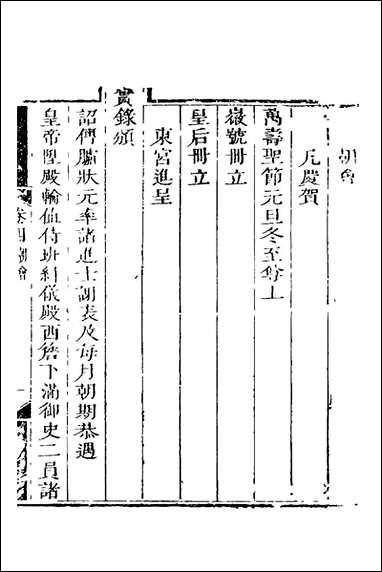 朝會
凡慶賀
萬壽聖節元旦冬至每上
徽號冊立
皇后冊立
東宮進呈
實錄頒
詔傳臚狀元率諸進士謝表及每月朝期恭遇
皇帝陞殿輪值侍班糾儀殿西簷下滿御史二員諸
卷四朝會